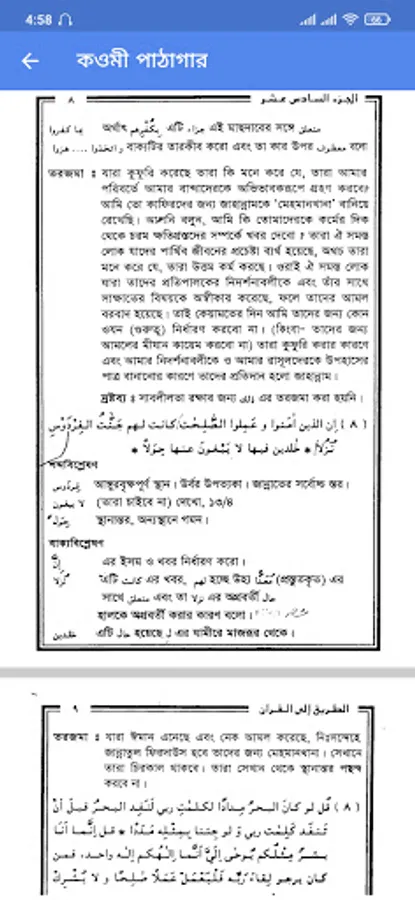 4:58
66
কওমী পাঠাগার
الجزء السادس عشر ٨
بما كفروا অর্থাৎ بكفرهم এটি جزاء এই মাছদারের সঙ্গে متعلق
واتخذوا .... هزوا বাক্যটির তারকীব করো এবং তা কার উপর معطوف বলো
তরজমা : যারা কুফুরি করেছে তারা কি মনে করে যে, তারা আমার
পরিবর্তে আমার বান্দাদেরকে অভিভাবকরূপে গ্রহণ করবে?
আমি তো কাফিরদের জন্য জাহান্নামকে 'মেহমানখানা' বানিয়ে
রেখেছি। আপনি বলুন, আমি কি তোমাদেরকে কর্মের দিক
থেকে চরম ক্ষতিগ্রস্তদের সম্পর্কে খবর দেবো? তারা ঐ সমস্ত
লোক যাদের পার্থিব জীবনের প্রচেষ্টা ব্যর্থ হয়েছে, অথচ তারা
মনে করে যে, তারা উত্তম কর্ম করছে। ওরাই ঐ সমস্ত লোক
যারা তাদের প্রতিপালকের নিদর্শনাবলীকে এবং তাঁর সাথে
সাক্ষাতের বিষয়কে অস্বীকার করেছে, ফলে তাদের আমল
বরবাদ হয়েছে। তাই কেয়ামতের দিন আমি তাদের জন্য কোন
ওযন (গুরুত্ব) নির্ধারণ করবো না। (কিংবা- তাদের জন্য
আমলের মীযান কায়েম করবো না) তারা কুফুরি করার কারণে
এবং আমার নিদর্শনাবলীকে ও আমার রাসূলদেরকে উপহাসের
পাত্র বানানোর কারণে তাদের প্রতিদান হলো জাহান্নাম।
দ্রষ্টব্য : সাবলীলতা রক্ষার জন্য ذلك এর তরজমা করা হয়নি।
(٨) إن الذين أمنوا و عملوا الصلحت كانت لهم جنت الفردوس
نزلا * خلدين فيها لا يبغون عنها حولا *
শব্দবিশ্লেষণ
فردوس আঙুরবৃক্ষপূর্ণ স্থান। উর্বর উপত্যকা। জান্নাতের সর্বোচ্চ স্তর।
لا يبغون (তারা চাইবে না) দেখো, ১৩/৪
حول স্থানান্তর, অন্যস্থানে গমন।
বাক্যবিশ্লেষণ
إن এর ইসম ও খবর নির্ধারণ করো।
نزلا এটি كانت এর খবর, لهم হচ্ছে উহ্য معدا (প্রস্তুতকৃত) এর
সাথে متعلق এবং তা نزلا এর অগ্রবর্তী حال
হালকে অগ্রবর্তী করার কারণ বলো।
خلدين এটি حال হয়েছে ل এর যামীরে মাজরূর থেকে।
الطريق إلى القرآن ٩
তরজমা : যারা ঈমান এনেছে এবং নেক আমল করেছে, নিঃসন্দেহে
জান্নাতুল ফিরদাউস হবে তাদের জন্য মেহমানখানা। সেখানে
তারা চিরকাল থাকবে। তারা সেখান থেকে স্থানান্তর পছন্দ
করবে না।
(٨) قل لو كان البحر مدادا لكلمت ربي لنفد البحر قبل أن
تنفد كلمت ربي و لو جئنا بمثله مددا * قل إنما أنا
بشر مثلكم يوحى إلي أنما إلهكم إله واحد، فمن
كان يرجو لقاء ربه فليعمل عملا صلحا و لا يشرك